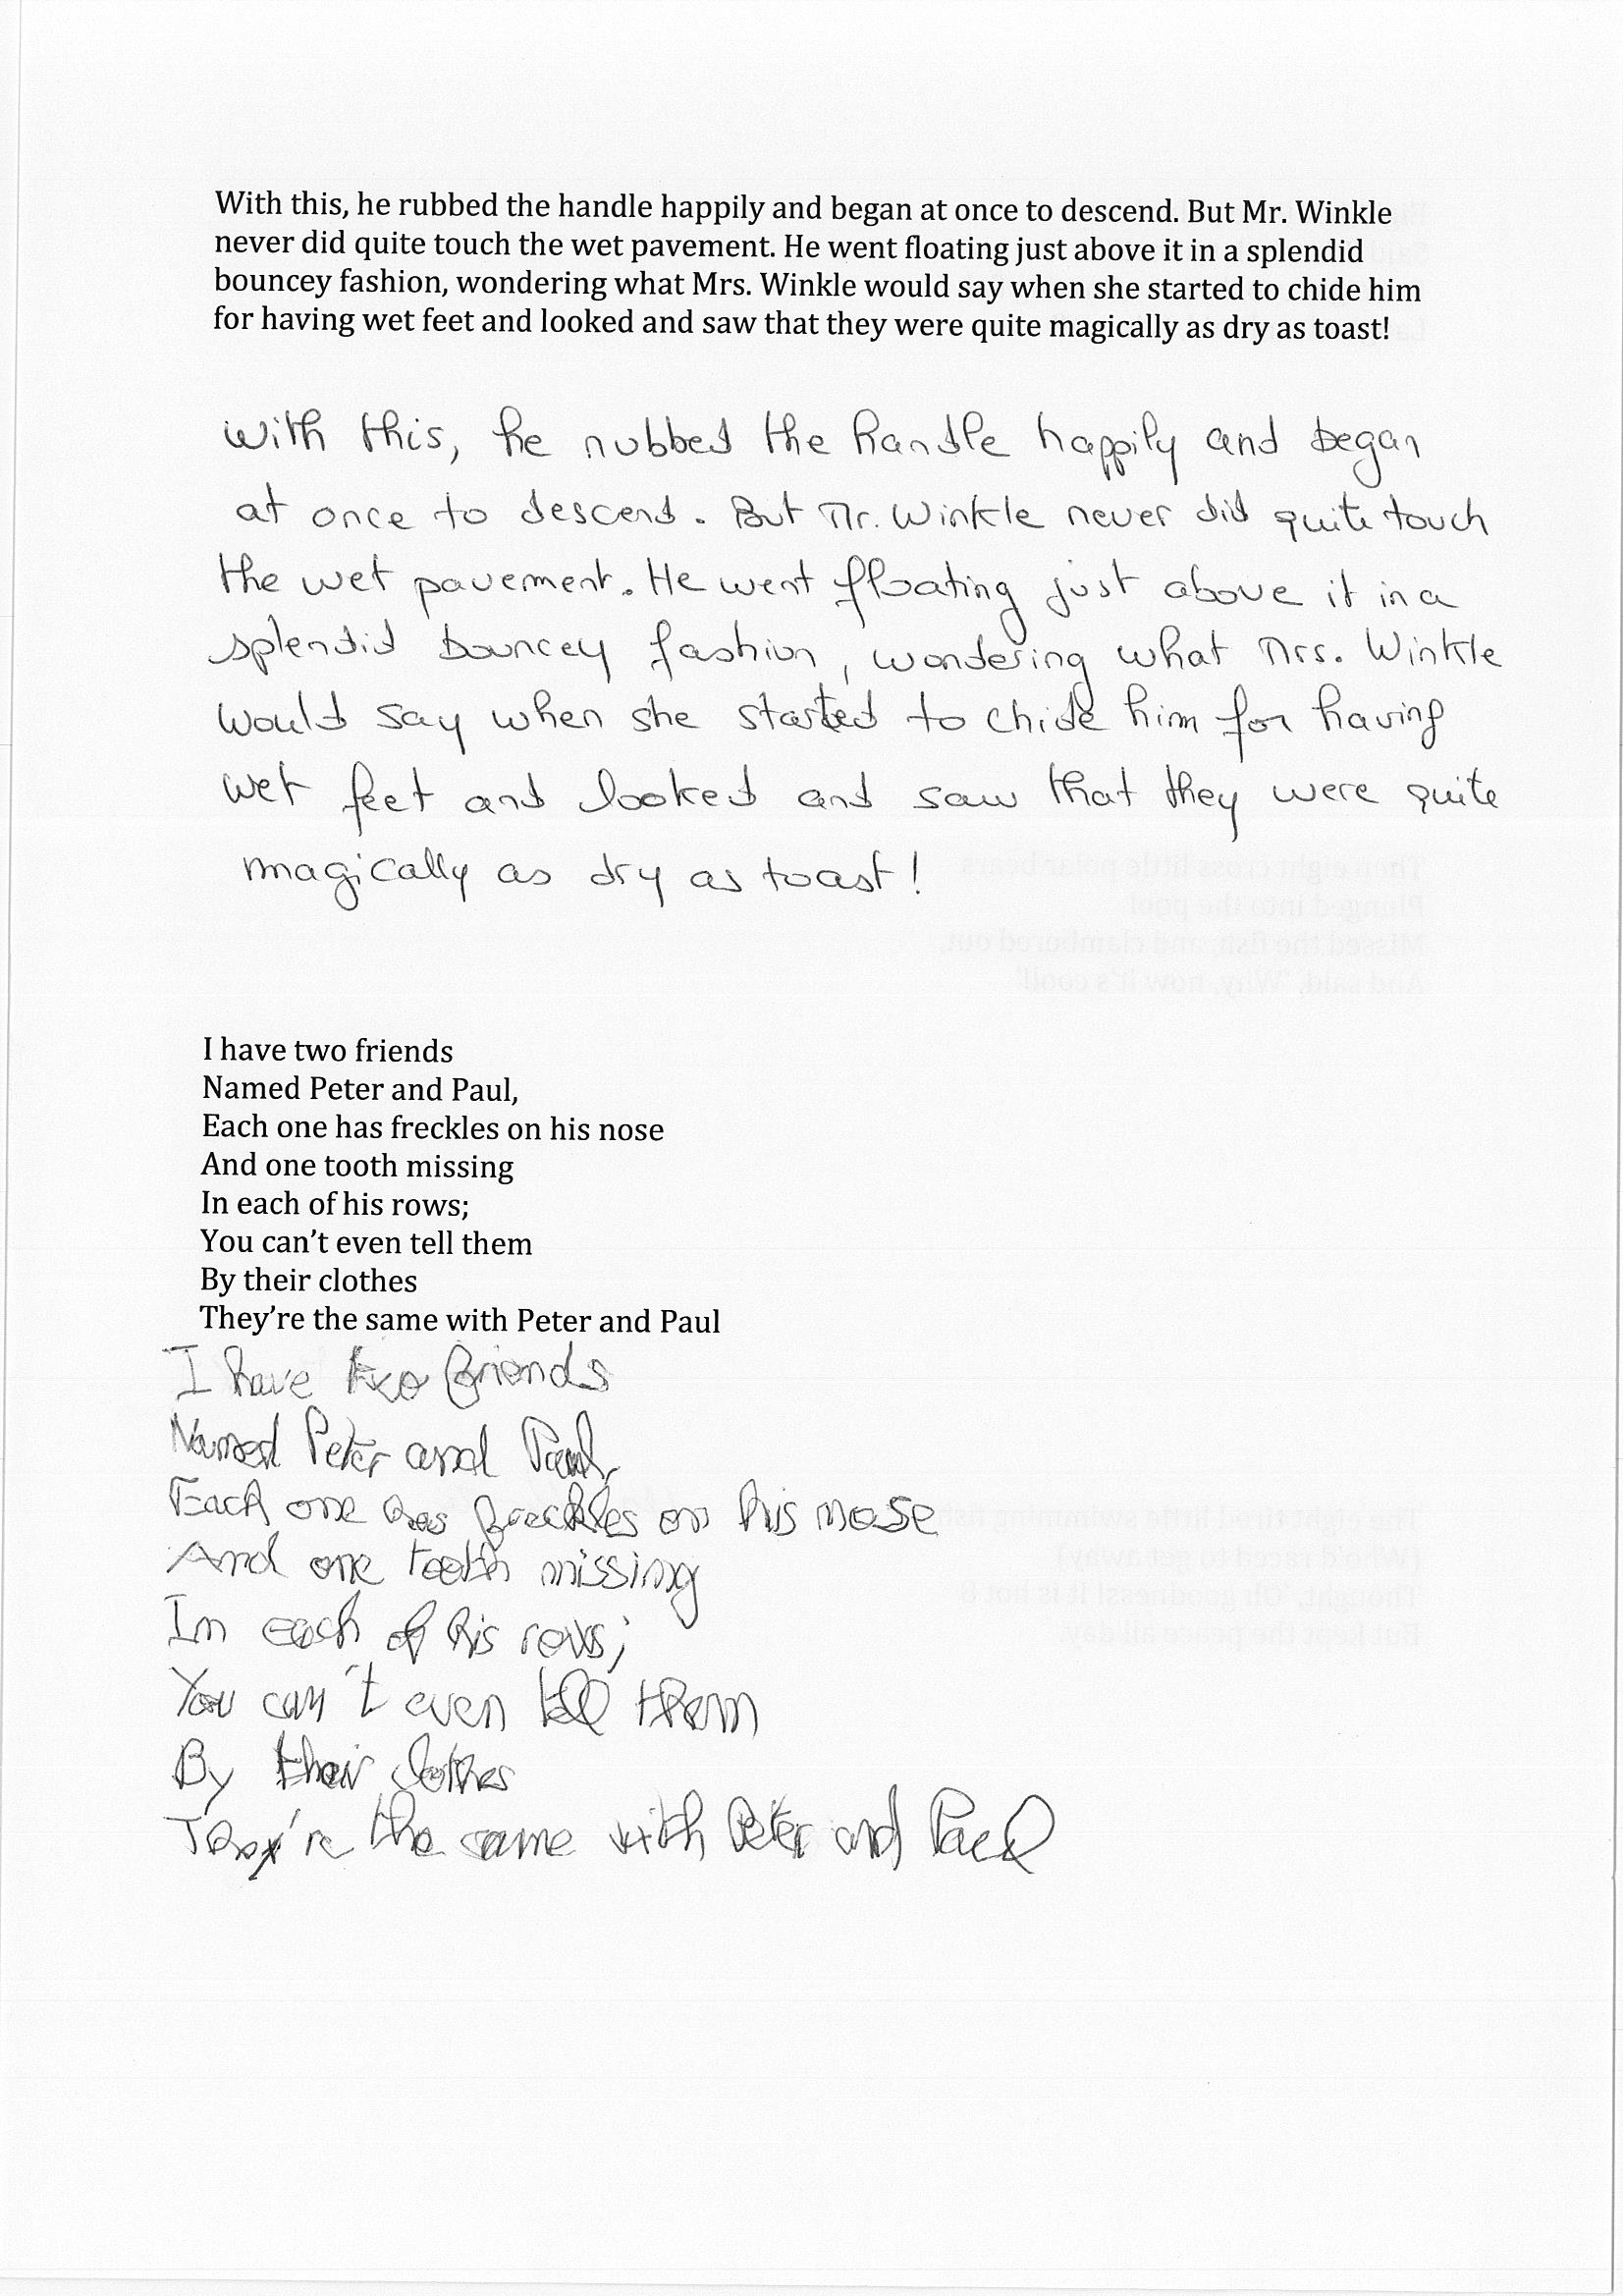 With this, he rubbed the handle happily and began at once to descend. But Mr. Winkle
never did quite touch the wet pavement. He went floating just above it in a splendid
bouncey fashion, wondering what Mrs. Winkle would say when she started to chide him
for having wet feet and looked and saw that they were quite magically as dry as toast!
With this, he rubbed the handle happily and began
at once to descend. But Mr. Winkle never did quite touch
the wet pavement. He went floating just above it in a
splendid bouncey fashion, wondering what Mrs. Winkle
would say when she started to chide him for having
wet feet and looked and saw that they were quite
magically as dry as toast!
I have two friends
Named Peter and Paul,
Each one has freckles on his nose
And one tooth missing
In each of his rows;
You can't even tell them
By their clothes
They're the same with Peter and Paul
I have two friends
Named Peter and Paul,
Each one has freckles on his nose
And one tooth missing
In each of his rows;
You can't even tell them
By their clothes
They're the same with Peter and Paul